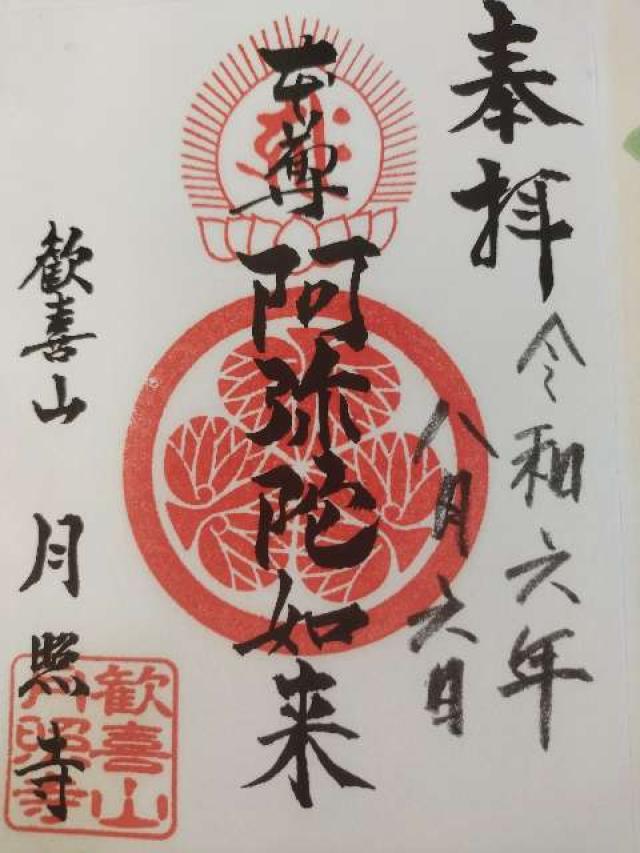 奉拝
令和六年
八月六日
本尊 阿弥陀如来
歓喜山 月照寺
歓喜山
月照寺